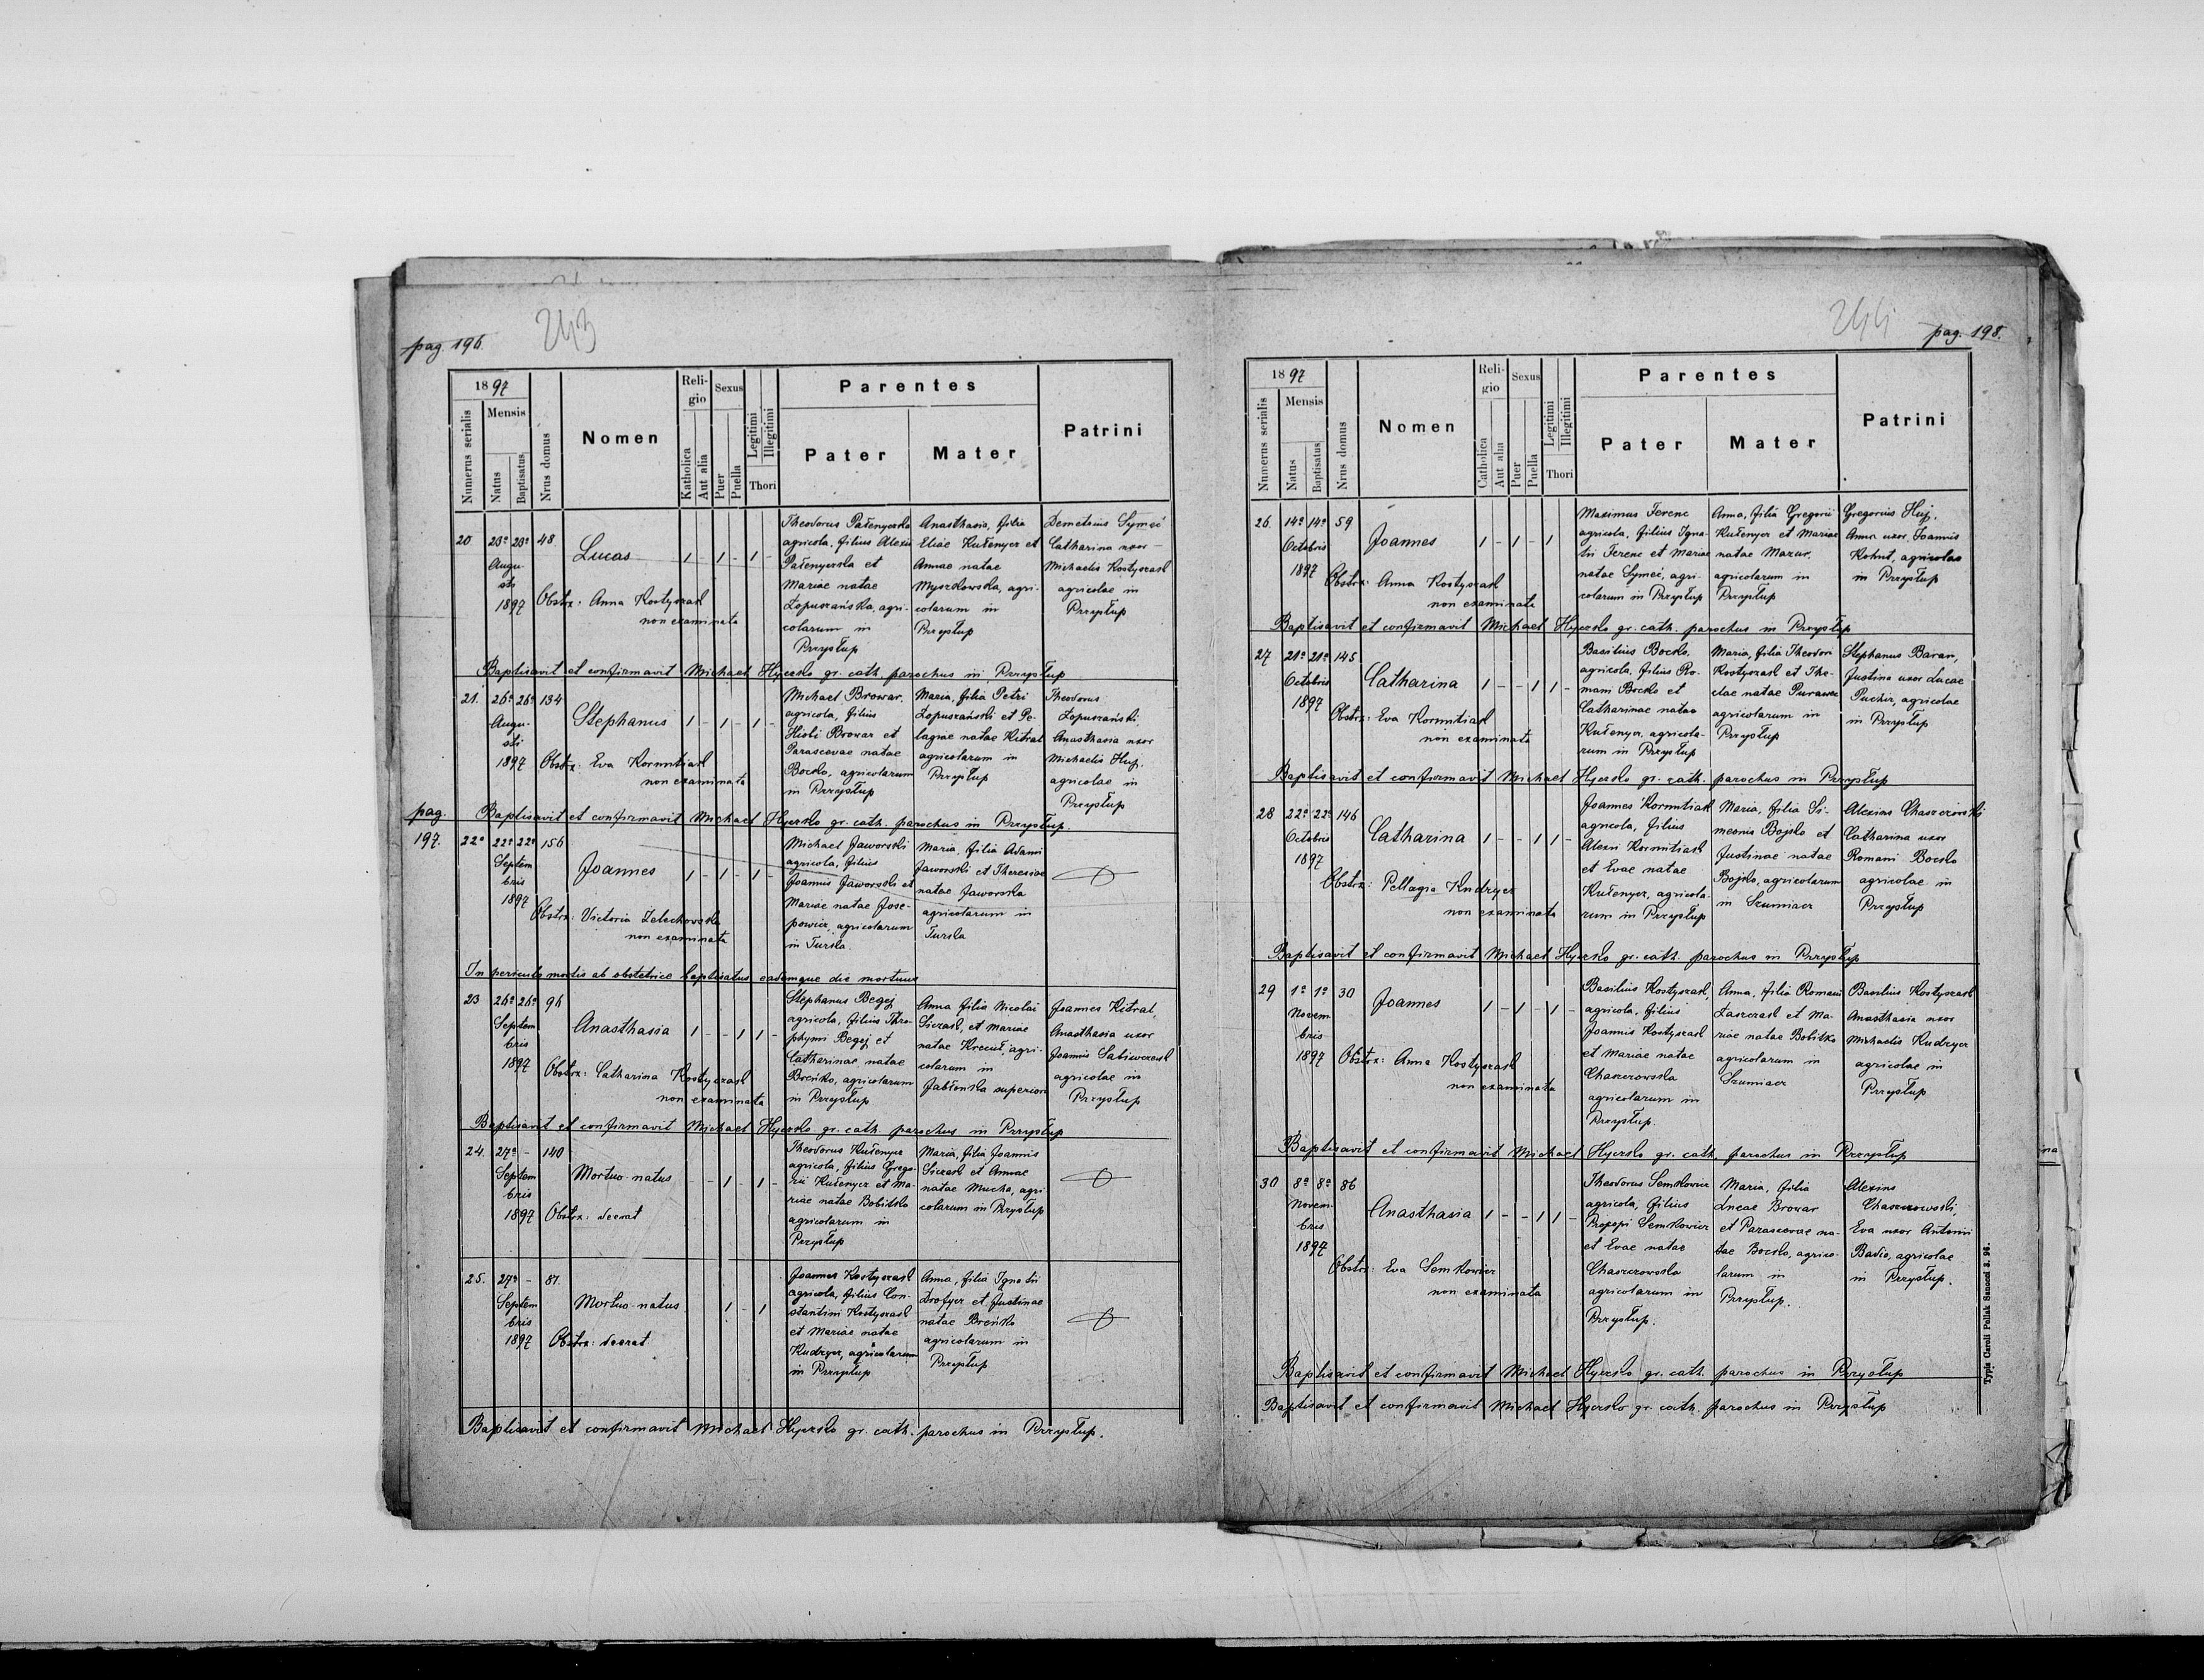 pag. 196.
243
1897
Numerus serialis
Mensis
Natus
Baptisatus
Nrus domus
Nomen
Religio
Katholica
Aut alia
Sexus
Puer
Puella
Legitimi
Illegitimi
Thori
Parentes
Pater
Mater
Patrini
20 23ª 23ª 48
Augu-
sti
1897
Lucas 1 - 1 - 1 -
Obstx: Anna Kostyszak
non examinata
Theodorus Pałenyczka
agricola, filius Alexii
Pałenyczka et
Mariae natae
Łopuszańska, agri-
colarum in
Przysłup
Anasthasia, filia
Eliae Kułenycz et
Annae natae
Myszkowska, agri-
colarum in
Przysłup
Demetrius Symeć
Catharina uxor
Michaelis Kostyszak
agricolae in
Przysłup
Baptisavit et confirmavit Michael Hyczko gr. cath. parochus in Przysłup
21. 26ª 26ª 134
Augu-
sti
1897
Stephanus 1 - 1 - 1 -
Obstx: Eva Kormitiak
non examinata
Michael Browar,
agricola, filius
Hiobi Browar et
Parascevae natae
Bocko, agricolarum
in Przysłup
Maria, filia Petri
Łopuszański et Pe-
lagiae natae Kitrat
agricolarum in
Przysłup
Theodorus
Łopuszański,
Anasthasia uxor
Michaelis Huj,
agricolae in
Przysłup
Baptisavit et confirmavit Michael Hyczko gr. cath. parochus in Przysłup.
pag.
197.
22ª 22ª 22ª 156
Septem
bris
1897
Joannes 1 - 1 - 1 -
Obstx: Victoria Zelechowska
non examinata
Michael Jaworski
agricola, filius
Joannis Jaworski et
Mariae natae Jose-
powicz, agricolarum
in Turka
Maria, filia Adami
Jaworski et Theresiae
natae Jaworska
agricolarum in
Turka
In periculo mortis ab obstetrice baptisatus eademque die mortuus
23 26ª 26ª 96
Septem
bris
1897
Anasthasia 1 - - 1 1 -
Obstx: Catharina Kostyszak
non examinata
Stephanus Begej
agricola, filius Thro-
phymi Begej et
Catharinae natae
Breńko, agricolarum
in Przysłup
Anna filia Nicolai
Siczak, et Mariae
natae Kreciuł, agri-
colarum in
Jabłonka superior
Joannes Kitrat,
Anasthasia uxor
Joannis
agricolae in
Przysłup
Baptisavit et confirmavit Michael Hyczko gr. cath. parochus in Przysłup
24. 27ª - 140
Septem
bris
1897
Mortuo-natus - - 1 - 1 -
Obstx: deerat
Theodorus Kułenycz
agricola, filius Grego-
rii Kułenycz et Ma-
riae natae Bobitko
agricolarum in
Przysłup
Maria, filia Joannis
Siczak et Annae
natae Mucha, agri
colarum in Przysłup
25. 27ª - 87.
Septem
bris
1897
Mortuo-natus 1 - 1
Obstx: deerat
Joannes Kostyszak
agricola, filius Con-
stantini Kostyszak
et Mariae natae
Kudzycz, agricolarum
in Przysłup
Anna, filia Ignatii
Drofycz et Justinae
natae Breńko
agricolarum in
Przysłup
Baptisavit et confirmavit Michael Hyczko gr. cath. parochus in Przysłup.
244
pag. 198.
1897
Numerus serialis
Mensis
Natus
Baptisatus
Nrus domus
Nomen
Religio
Catholica
Aut alia
Sexus
Puer
Puella
Legitimi
Illegitimi
Thori
Parentes
Pater
Mater
Patrini
26. 14ª 14ª 59
Octobris
1897
Joannes 1 - 1 - 1
Obstx: Anna Kostyszak
non examinata
Maximus Ferenc
agricola, filius Igna-
tii Ferenc et Mariae
natae Symeć, agri-
colarum in Przysłup
Anna, filia Gregorii
Kułenycz et Mariae
natae Mazur,
agricolarum in
Przysłup
Gregorius Huj,
Anna uxor Joannis
Kohut, agricolae
in Przysłup
Baptisavit et confirmavit Michael Hyczko gr. cath. parochus in Przysłup
27 21ª 21ª 145
Octobris
1897
Catharina 1 - - 1 1 -
Obstx: Eva Kormitiak
non examinata
Basilius Bocko,
agricola, filius Ro-
mani Bocko et
Catharinae natae
Kułenycz, agricola-
rum in Przysłup
Maria, filia Theodori
Kostyszak et The-
clae natae
agricolarum in
Przysłup
Stephanus Baran,
Justina uxor Lucae
Puchir, agricolae
in Przysłup
Baptisavit et confirmavit Michael Hyczko gr. cath. parochus in Przysłup
28 22ª 22ª 146
Octobris
1897
Catharina 1 - - 1 1 -
Obstx: Pellagia Kudzycz
non examinata
Joannes Kormitiak
agricola, filius
Alexii Kormitiak
et Evae natae
Kułenycz, agricola-
rum in Przysłup
Maria, filia Si-
meonis Bojko et
Justinae natae
Bojko, agricolarum
in Szumiacz
Alexius Chaszczowski
Catharina uxor
Romani Bocko
agricolae in
Przysłup
Baptisavit et confirmavit Michael Hyczko gr. cath. parochus in Przysłup
29 1ª 1ª 30
Novem
bris
1897
Joannes 1 - 1 - 1 -
Obstx: Anna Kostyszak
non examinata
Basilius Kostyszak,
agricola, filius
Joannis Kostyszak
et Mariae natae
Chaszczowska
agricolarum in
Przysłup.
Anna, filia Romani
Łaszczak et Ma-
riae natae Bobitko
agricolarum in
Szumiacz
Basilius Kostyszak
Anasthasia uxor
Michaelis Kudzycz
agricolae in
Przysłup
Baptisavit et confirmavit Michael Hyczko gr. cath. parochus in Przysłup
30 8ª 8ª 86
Novem-
bris
1897
Anasthasia 1 - - 1 1 -
Obstx: Eva Semkowicz
non examinata
Theodorus Semkowicz
agricola, filius
Prokopi Semkowicz
et Evae natae
Chaszczowska
agricolarum in
Przysłup.
Maria, filia
Lucae Browar
et Parascevae na-
tae Bocko, agrico-
larum in
Przysłup.
Alexius
Chaszczowski,
Eva uxor Antonii
Badio, agricolae
in Przysłup.
Baptisavit et confirmavit Michael Hyczko gr. cath. parochus in Przysłup
Baptisavit et confirmavit Michael Hyczko gr. cath. parochus in Przysłup
Typis Caroli Pollak Sanoci 3. 96.